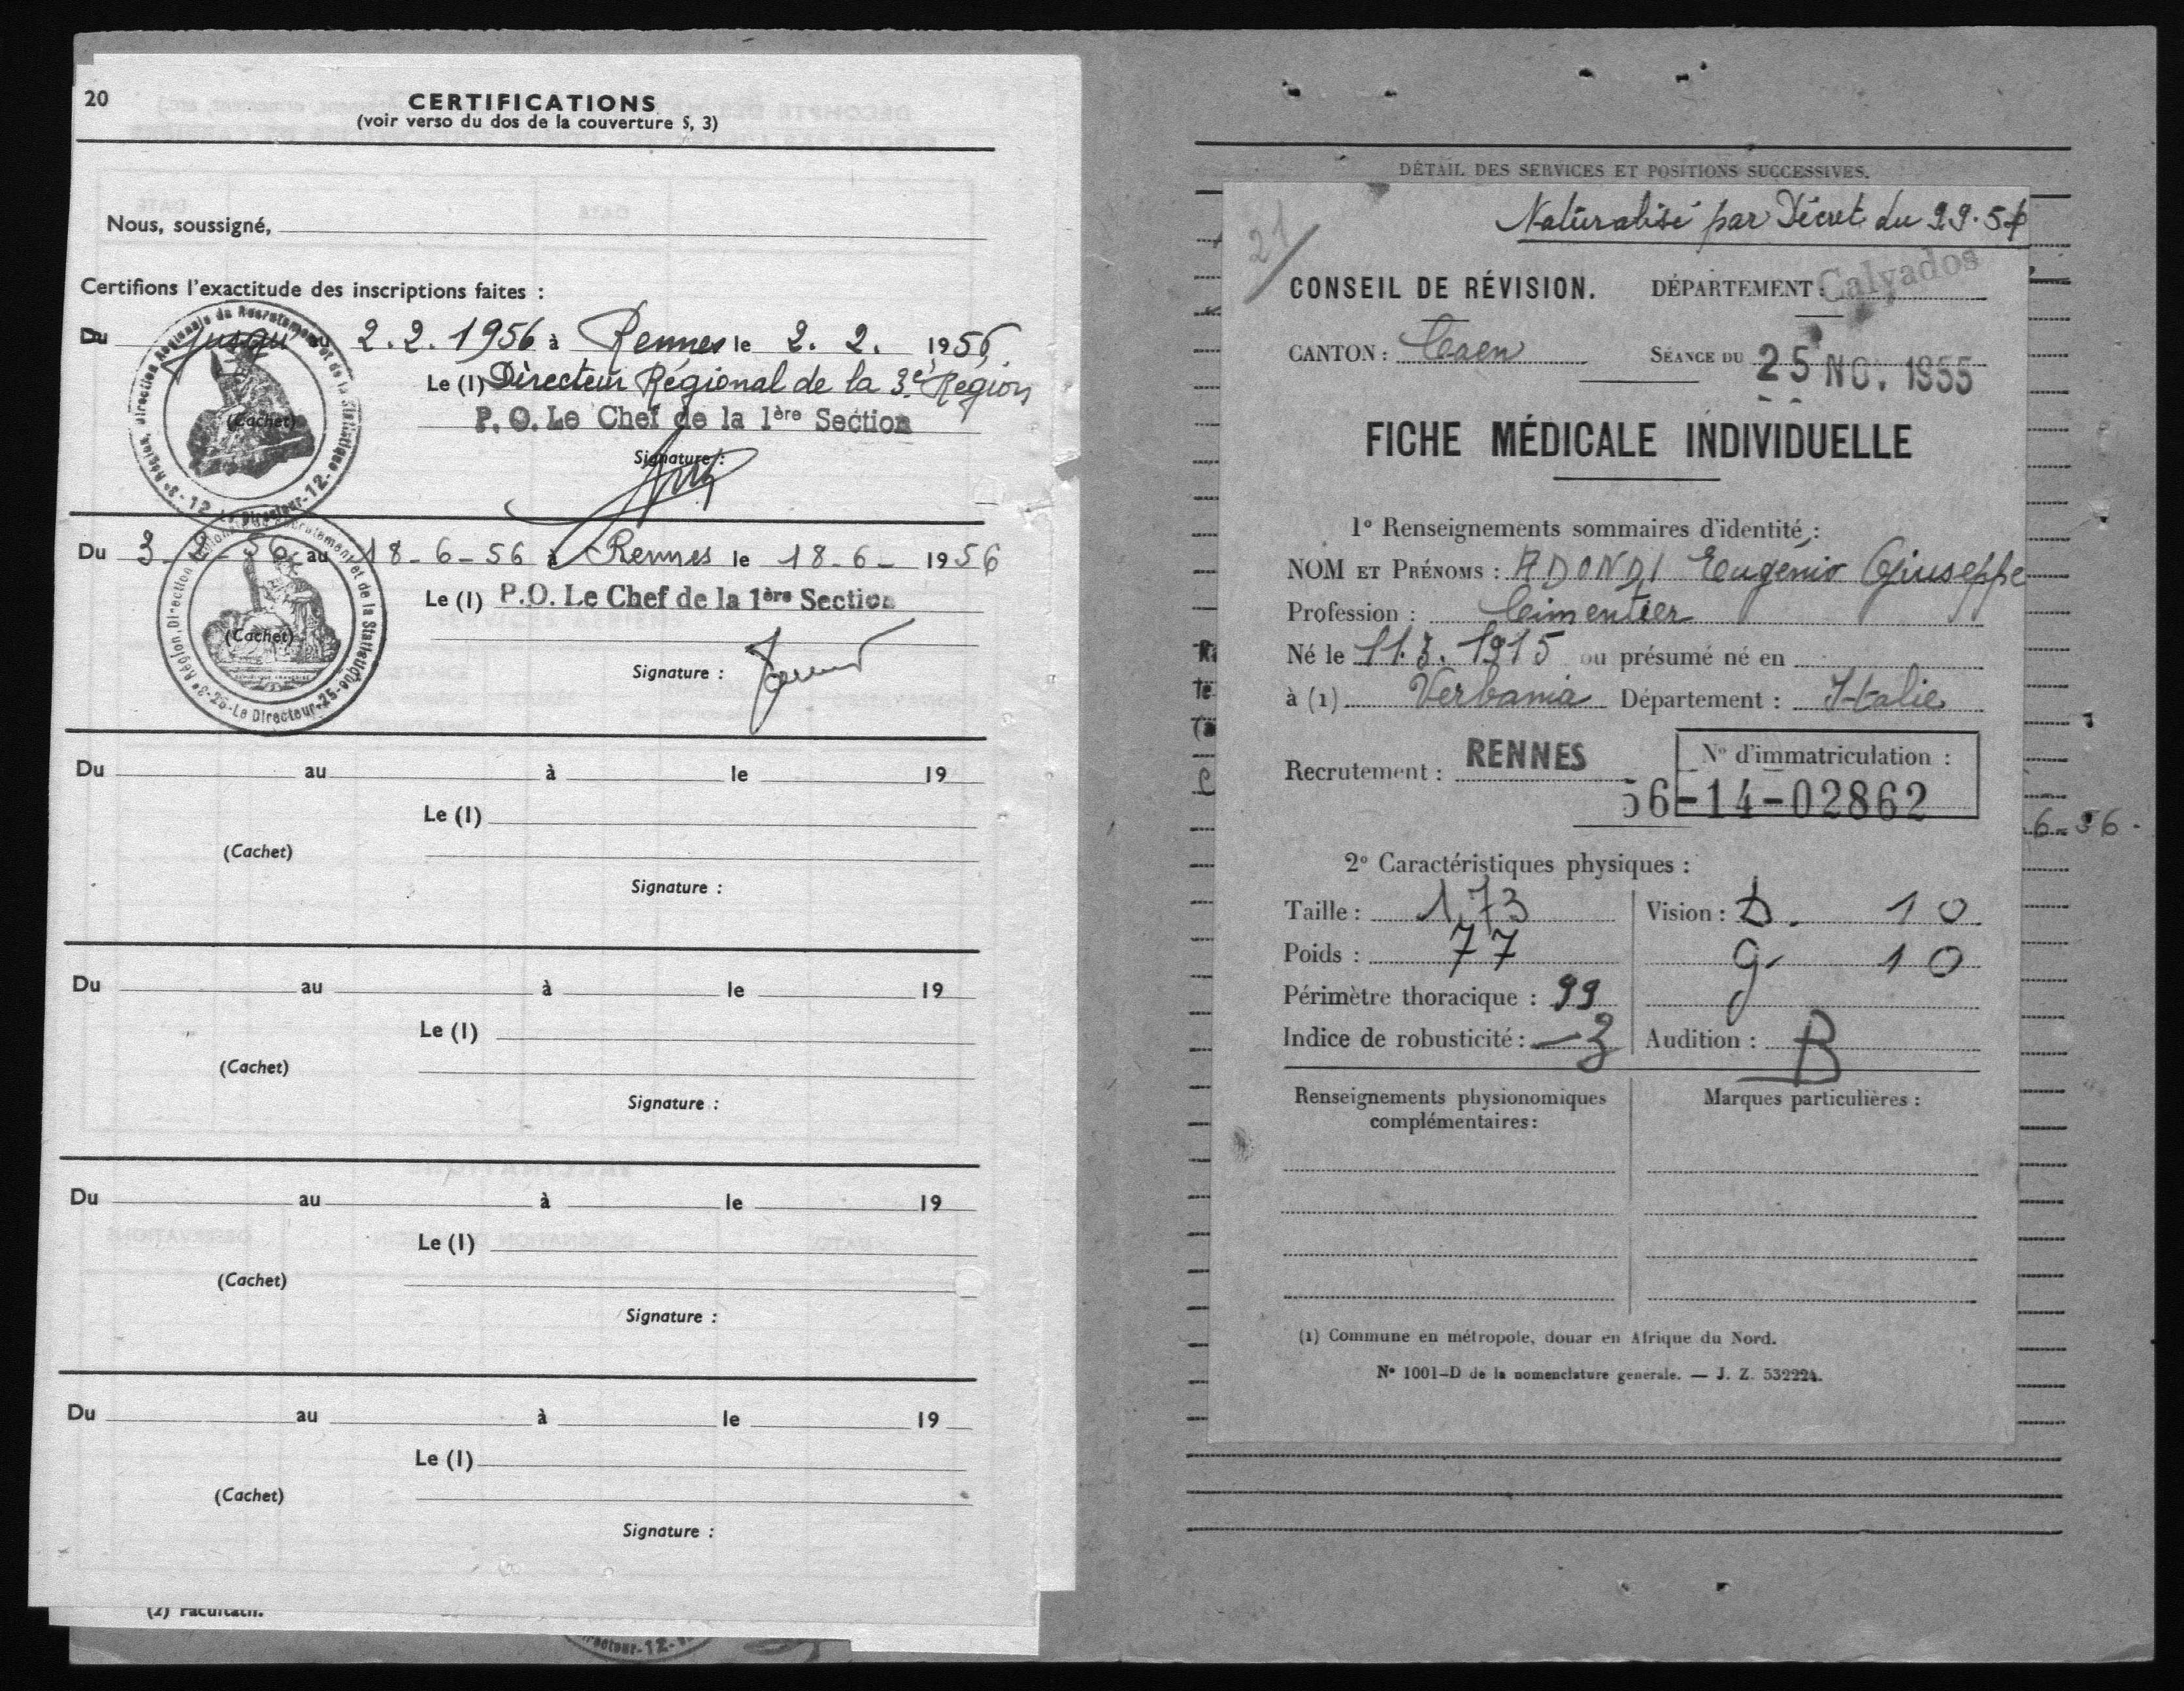 20
CERTIFICATIONS
(voir verso du dos de la couverture S, 3)
Nous, soussigné,
Certifions l'exactitude des inscriptions faites :
Du jusqu'au 2.2.1956 à Rennes le 2. 2. 1956
Le (1) Directeur Régional de la 3e Région
P. O. Le Chef de la 1ère Section
(Cachet)
Signature :
Du 3 - - 56 au 18-6-56 à Rennes le 18-6- 1956
Le (1) P.O. Le Chef de la 1ère Section
(Cachet)
Signature :
3e Région, Direction Régionale du Recrutement et de la Statistique
-25-Le Directeur-25-
Du au à le 19
Le (1)
(Cachet)
Signature :
Du au à le 19
Le (1)
(Cachet)
Signature :
Du au à le 19
Le (1)
(Cachet)
Signature :
Du au à le 19
Le (1)
(Cachet)
Signature :
(2) Facultatif.
DÉTAIL DES SERVICES ET POSITIONS SUCCESSIVES.
21/
Naturalisé par Décret du
CONSEIL DE RÉVISION. DÉPARTEMENT : Calvados
CANTON : Caen SÉANCE DU 25 NO. 1955
FICHE MÉDICALE INDIVIDUELLE
1° Renseignements sommaires d'identité :
NOM ET PRÉNOMS : ADONDI Eugenio Giuseppe
Profession : Cimentier
Né le 11.3.1915 ou présumé né en
à (1) Verbania Département : Italie
Recrutement : RENNES N° d'immatriculation :
56-14-02862
6-56.
2° Caractéristiques physiques :
Taille : 1,73 Vision : D. 10
Poids : 77 g. 10
Périmètre thoracique : 99
Indice de robusticité : -3 Audition : B
Renseignements physionomiques
complémentaires :
Marques particulières :
(1) Commune en métropole, douar en Afrique du Nord.
N° 1001-D de la nomenclature générale. — J. Z. 532224.